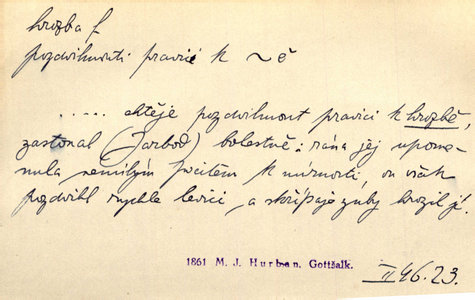 hrozba f.
pozdvihnouti pravici k ~ě
..... chtěje pozdvihnout pravici k hrozbě,
zastonal (Jarboď) bolestně: rána jej upome-
nula nemilým pocitem k mírnosti, on však
pozdvihl rychle levici, a skřípaje zuby hrozil jí.
1861 M. J. Hurban. Gottšalk.
II 46.23.